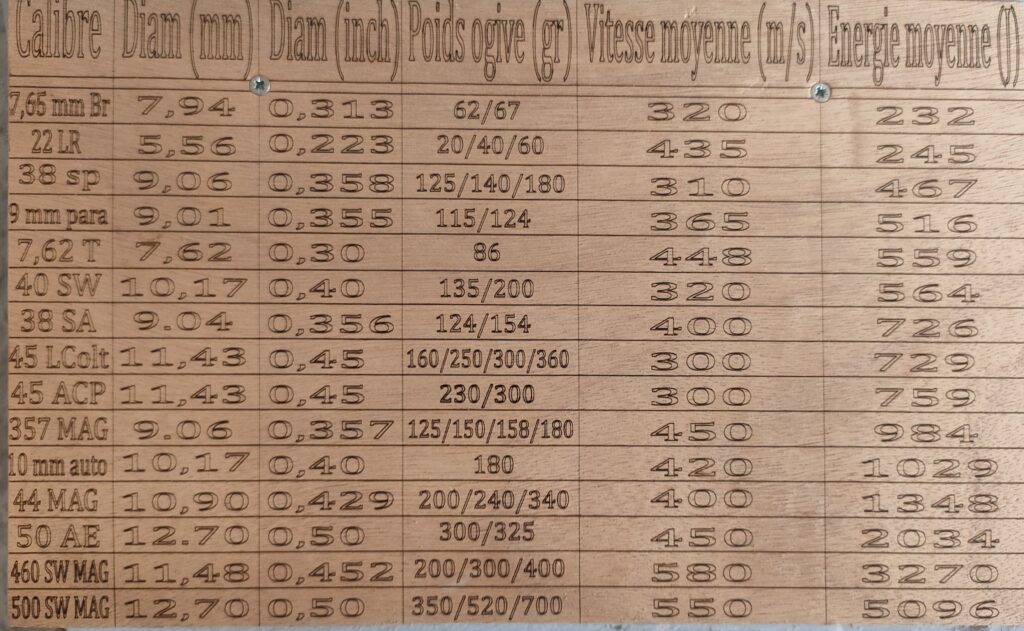 Calibre Diam (mm) Diam (inch) Poids ogive (gr) Vitesse moyenne (m/s) Energie moyenne (J)
7,65 mm Br 7,94 0,313 62/67 320 232
22 LR 5,56 0,223 20/40/60 435 245
38 sp 9,06 0,358 125/140/180 310 467
9 mm para 9,01 0,355 115/124 365 516
7,62 T 7,62 0,30 86 448 559
40 SW 10,17 0,40 135/200 320 564
38 SA 9.04 0,356 124/154 400 726
45 LColt 11,43 0,45 160/250/300/360 300 729
45 ACP 11,43 0,45 230/300 300 759
357 MAG 9.06 0,357 125/150/158/180 450 984
10 mm auto 10,17 0,40 180 420 1029
44 MAG 10,90 0,429 200/240/340 400 1348
50 AE 12.70 0,50 300/325 450 2034
460 SW MAG 11,48 0,452 200/300/400 580 3270
500 SW MAG 12,70 0,50 350/520/700 550 5096